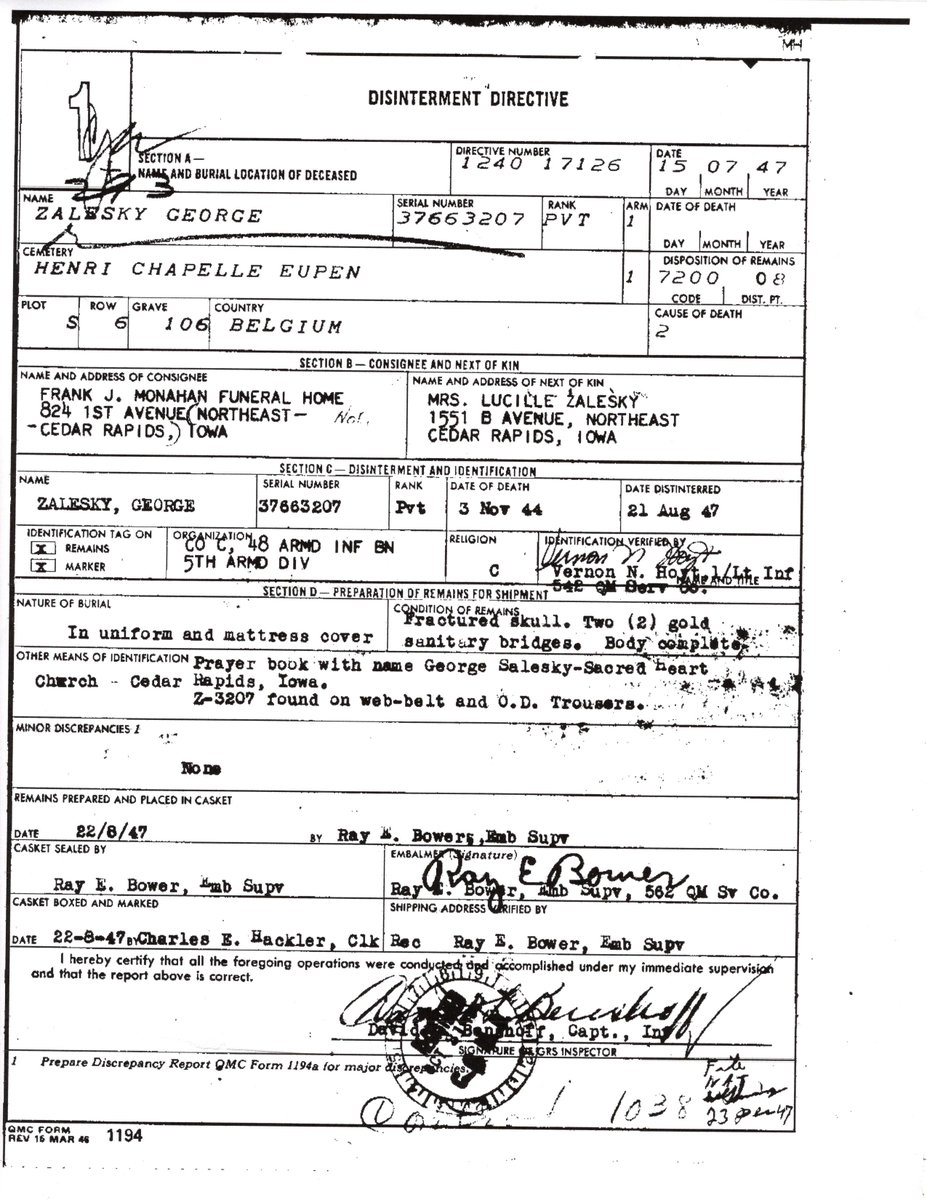 MH
DISINTERMENT DIRECTIVE
1
SECTION A—
NAME AND BURIAL LOCATION OF DECEASED
DIRECTIVE NUMBER
1240 17126
DATE
15 07 47
DAY MONTH YEAR
NAME
ZALESKY GEORGE
SERIAL NUMBER
37663207
RANK
PVT
ARM
1
DATE OF DEATH
DAY MONTH YEAR
CEMETERY
HENRI CHAPELLE EUPEN
1
DISPOSITION OF REMAINS
7200 08
CODE DIST. PT.
PLOT
S
ROW
6
GRAVE
106
COUNTRY
BELGIUM
CAUSE OF DEATH
2
SECTION B — CONSIGNEE AND NEXT OF KIN
NAME AND ADDRESS OF CONSIGNEE
FRANK J. MONAHAN FUNERAL HOME
824 1ST AVENUE(NORTHEAST—
-CEDAR RAPIDS,) IOWA
NAME AND ADDRESS OF NEXT OF KIN
MRS. LUCILLE ZALESKY
1551 B AVENUE, NORTHEAST
CEDAR RAPIDS, IOWA
SECTION C — DISINTERMENT AND IDENTIFICATION
NAME
ZALESKY, GEORGE
SERIAL NUMBER
37663207
RANK
Pvt
DATE OF DEATH
3 Nov 44
DATE DISTINTERRED
21 Aug 47
IDENTIFICATION TAG ON
X REMAINS
X MARKER
ORGANIZATION
CO C, 48 ARMD INF BN
5TH ARMD DIV
RELIGION
C
IDENTIFICATION VERIFIED BY
Vernon N. Hoyt, 1/Lt Inf
542 QM Serv Co.
NAME AND TITLE
SECTION D — PREPARATION OF REMAINS FOR SHIPMENT
NATURE OF BURIAL
In uniform and mattress cover
CONDITION OF REMAINS
Fractured skull. Two (2) gold
sanitary bridges. Body complete.
OTHER MEANS OF IDENTIFICATION Prayer book with name George Salesky-Sacred Heart
Church - Cedar Rapids, Iowa.
Z-3207 found on web-belt and O.D. Trousers.
MINOR DISCREPANCIES 1
None
REMAINS PREPARED AND PLACED IN CASKET
DATE 22/8/47 BY Ray E. Bowers, Emb Supv
CASKET SEALED BY
Ray E. Bower, Emb Supv
EMBALMER (Signature)
Ray E Bower
Ray E. Bower, Emb Supv, 562 QM Sv Co.
CASKET BOXED AND MARKED
DATE 22-8-47 BY Charles E. Hackler, Clk
SHIPPING ADDRESS VERIFIED BY
Rec Ray E. Bower, Emb Supv
I hereby certify that all the foregoing operations were conducted and accomplished under my immediate supervision
and that the report above is correct.
Benshoff, Capt., Inf
SIGNATURE OF GRS INSPECTOR
1 Prepare Discrepancy Report QMC Form 1194a for major discrepancies.
File
1038
23 Dec 47
QMC FORM
REV 15 MAR 46 1194